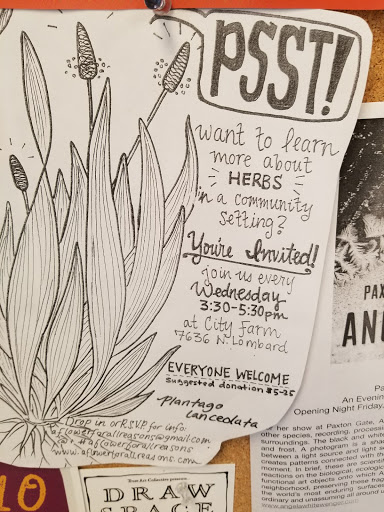 PSST!
want to learn
more about
HERBS
in a community
setting?
You're Invited!
join us every
Wednesday
3:30-5:30pm
at City Farm
7636 N. Lombard
EVERYONE WELCOME
suggested donation $5-25
-Plantago
lanceolata
Drop in or RSVP for info:
aflowerforallreasons@gmail.com
@ + #aflowerforallreasons
www.aflowerforallreasons.com
PAX
AN
Pa
An Evenin
Opening Night Friday,
her show at Paxton Gate, A
other species, reminding, process
surroundings. The black and whi
and frost. A photogram is a sha
between a light source and light se
creates patterns connected with his
ement. In brief, these are scientif
reactions on the biological, ecologic
functional art objects onto which A
neighborhood, preserving these frag
the world's most enduring surfaces
ordinary and unassuming all around
www.angelawhitewor
10
Trust Art Collective presents
DRAW
SPACE